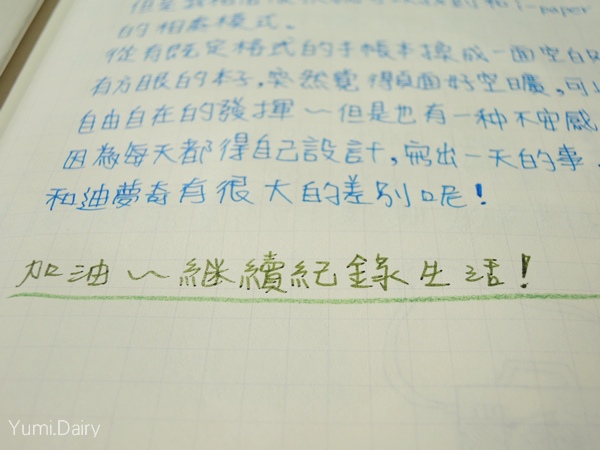 i-paper
的相處模式。
從有既定格式的手帳本換成一面空白
有方眼的本子,突然覺得頁面好空曠,可
自由自在的發揮～但是也有一种不安感
因為每天都得自己設計,寫出一天的事,
和迪夢奇有很大的差別呢!
加油～繼續紀錄生活!
Yumi.Dairy